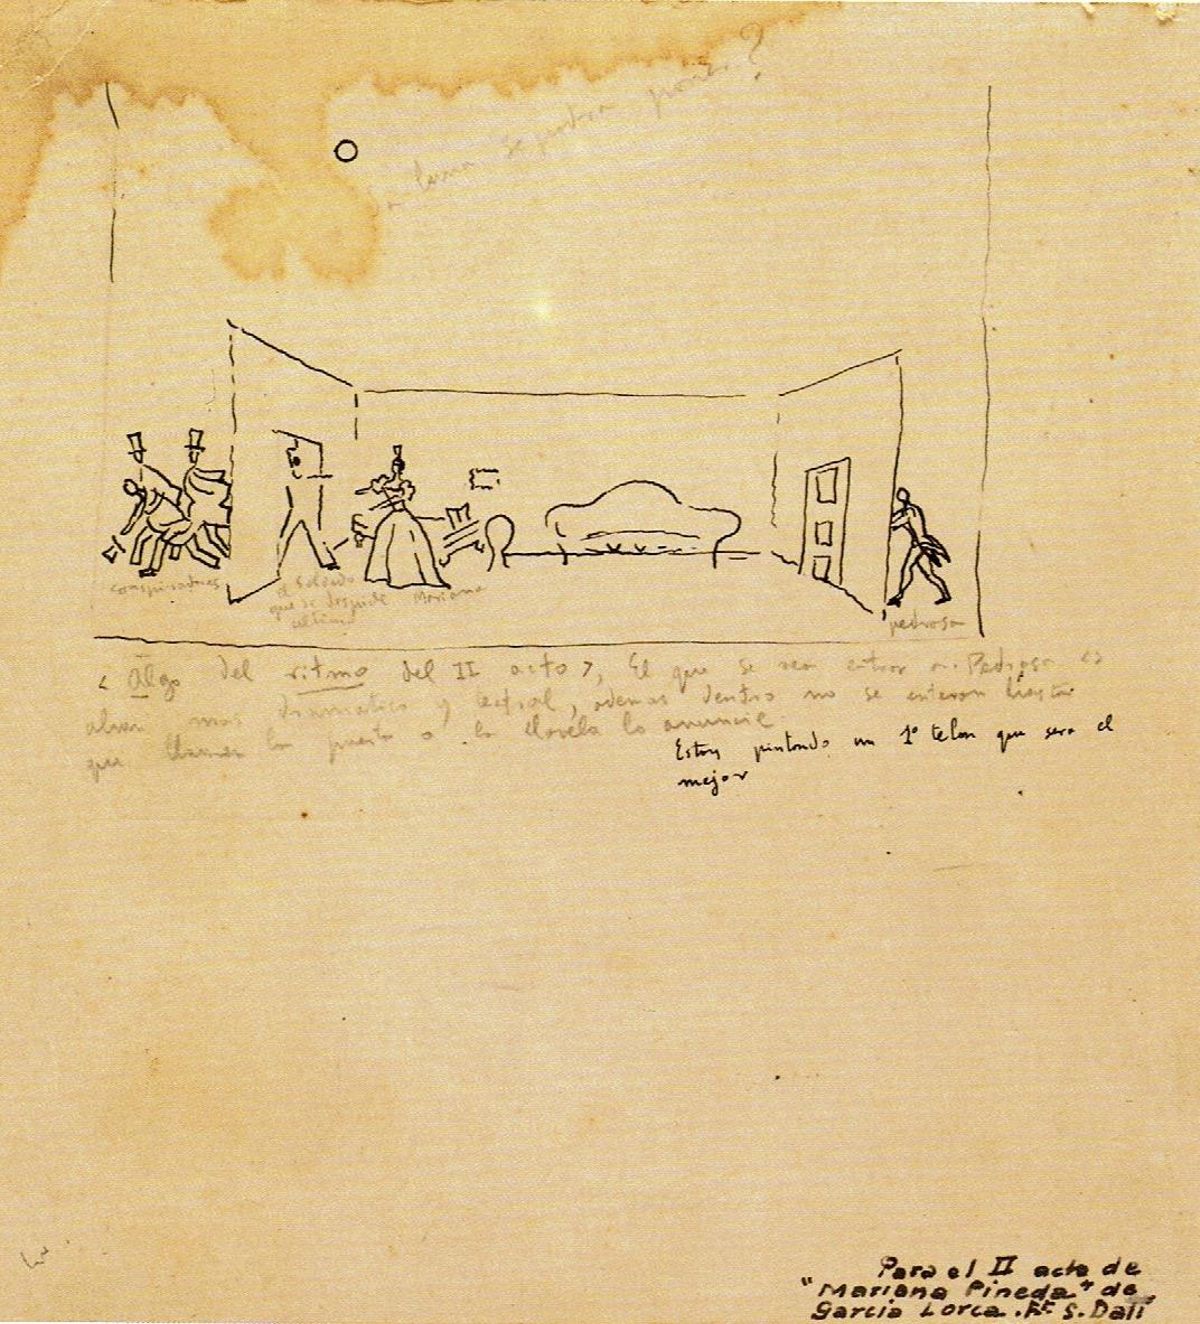 luna se podra poner?
conspiradores
el soldado
que se despide
ultimo
Mariana
pedrosa
< Algo del ritmo del II acto >, El que se vea entrar a Pedrosa es
mas dramatico y teatral, ademas dentro no se enteran hasta
que llaman la puerta o la Clavela lo anuncie.
Estoy pintando un 1º telon que sera el
mejor
Para el II acto de
"Mariana Pineda" de
Garcia Lorca. S. Dalí